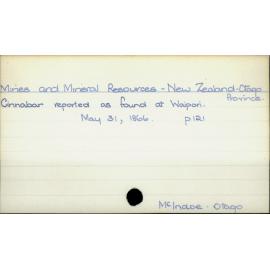 Mines and Mineral Resources - New Zealand - Otago
Province.
Cinnabar reported as found at Waipori.
May 31, 1866. p121
McIndoe - Otago